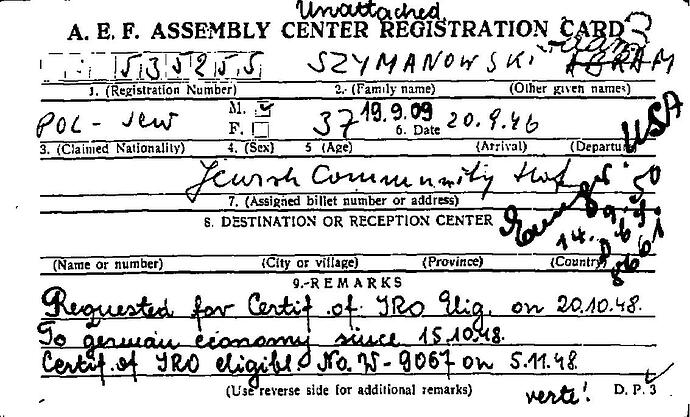 Unattached
A. E. F. ASSEMBLY CENTER REGISTRATION CARD
535255 SZYMANOWSKI ABRAM
1. (Registration Number) 2. (Family name) (Other given names)
POL - Jew M. F. 37 19.9.09 20.9.46
3. (Claimed Nationality) 4. (Sex) 5 (Age) 6. Date (Arrival) (Departure)
USA
Jewish Community Hof
7. (Assigned billet number or address)
8. DESTINATION OR RECEPTION CENTER
(Name or number) (City or village) (Province) (Country)
9.-REMARKS
Requested for Certif. of IRO Elig. on 20.10.48.
To german economy since 15.10.48.
Certif. of IRO eligibl. No. W-9067 on 5.11.48.
(Use reverse side for additional remarks) verte! D. P. 3